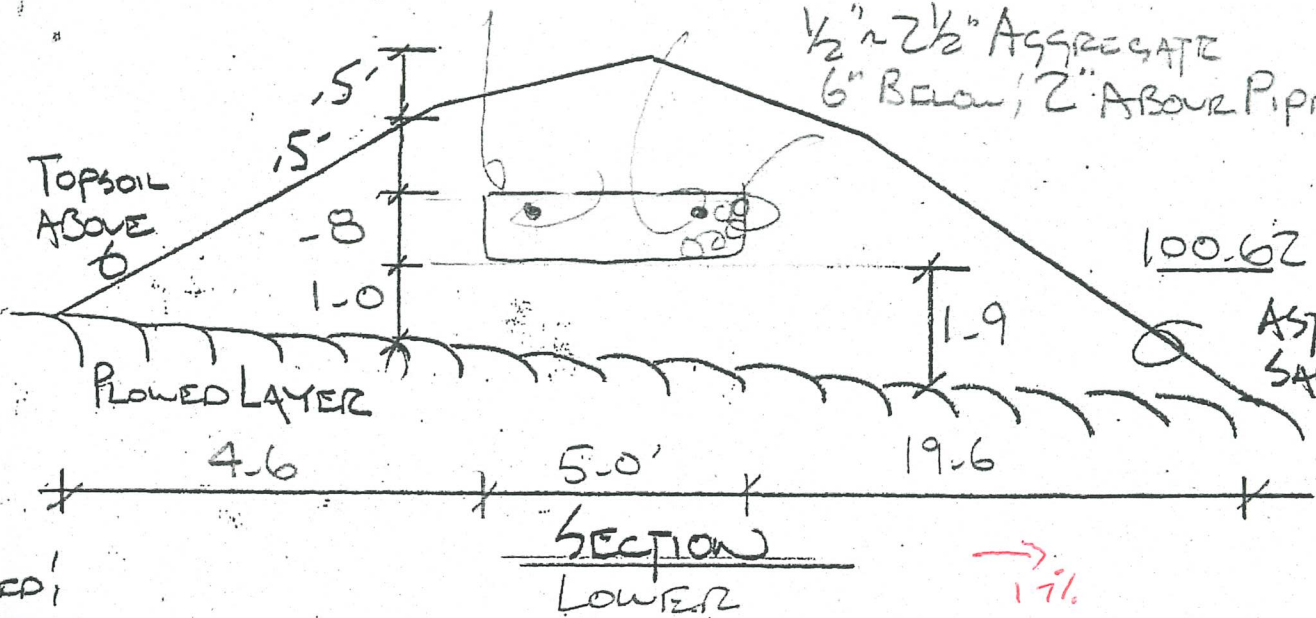 ½" ~ 2½" AGGREGATE
6" BELOW, 2" ABOVE PIP
.5'
.5'
TOPSOIL
ABOVE
6
-8
1-0
1-9
100.62
AST
SA
PLOWED LAYER
4-6
5-0'
19-6
SECTION
LOWER
17%